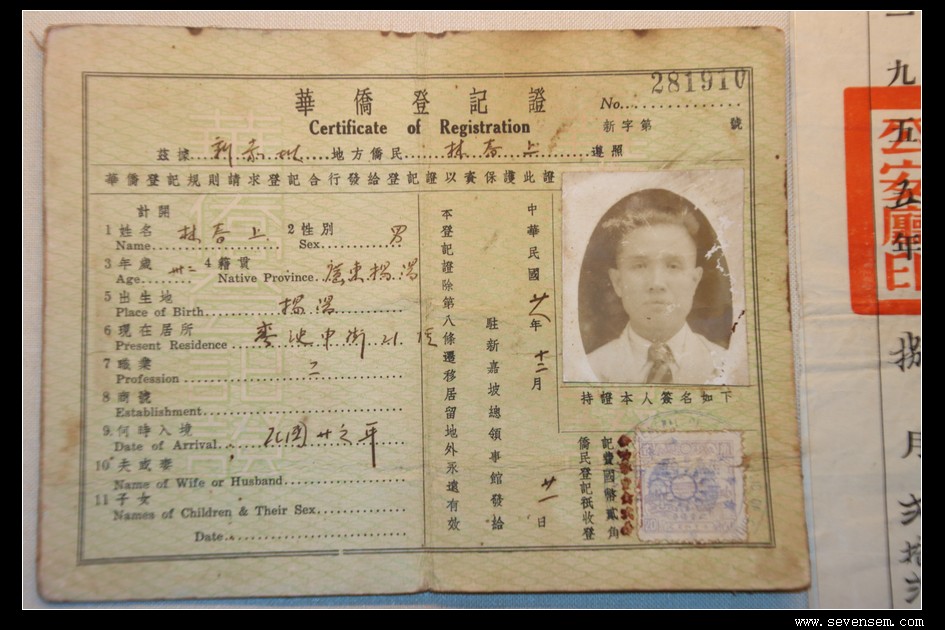 華僑登記證
Certificate of Registration
No. 281910
新字第 號
茲據 地方僑民 林 上 遵照
華僑登記規則請求登記合行發給登記證以資保護此證
計開
1 姓名 Name 林 上
2 性別 Sex 男
3 年歲 Age 卅二
4 籍貫 Native Province 廣東揭陽
5 出生地 Place of Birth 揭陽
6 現在居所 Present Residence
7 職業 Profession 工
8 商號 Establishment
9 何時入境 Date of Arrival 民國廿 年
10 夫或妻 Name of Wife or Husband
11 子女 Names of Children & Their Sex
Date
本登記證除第八條遷移居留地外永遠有效
駐新嘉坡總領事館發給
中華民國 廿八年 十二月 廿一日
持證本人簽名如下
僑民登記祇收登
記費國幣貳角
九五五年捌月
公安廳印
www.sevensem.com